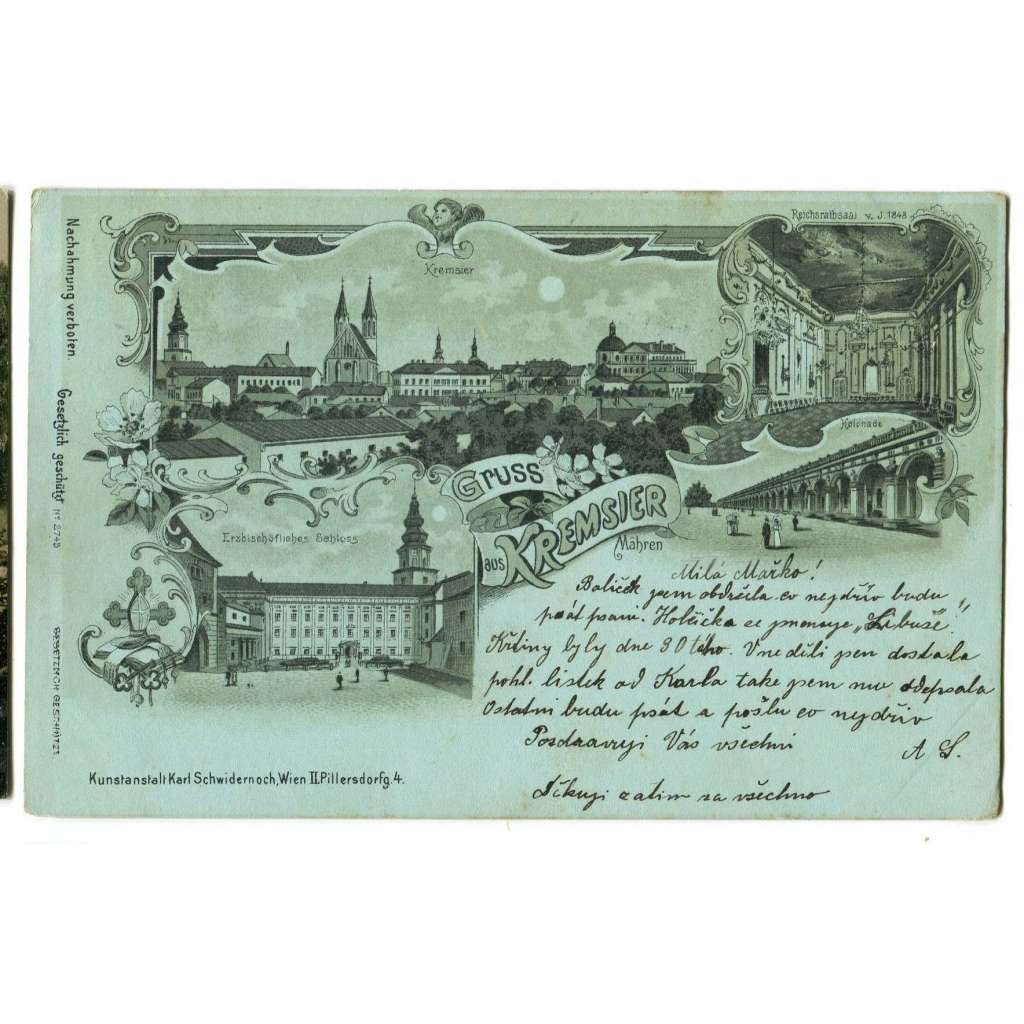 Nachahmung verboten. Gesetzlich geschützt Nº 2745
GESETZLICH GESCHÜTZT
Kremsier
Reichsrathsaal v. J. 1848
Kolonade
Erzbischöfliches Schloss
GRUSS
aus KREMSIER
Mähren
Milá Mařko!
Balíček jsem obdržela co nejdřív budu
psát psaní. Holčička se jmenuje „Libuše".
Křtiny byly dne 30 tého. V neděli jsem dostala
pohl. lístek od Karla také jsem mu odepsala
Ostatní budu psát a pošlu co nejdřív
Pozdravuji Vás všechni
A S.
Děkuji zatim za všechno
Kunstanstalt Karl Schwidernoch, Wien II. Pillersdorfg. 4.